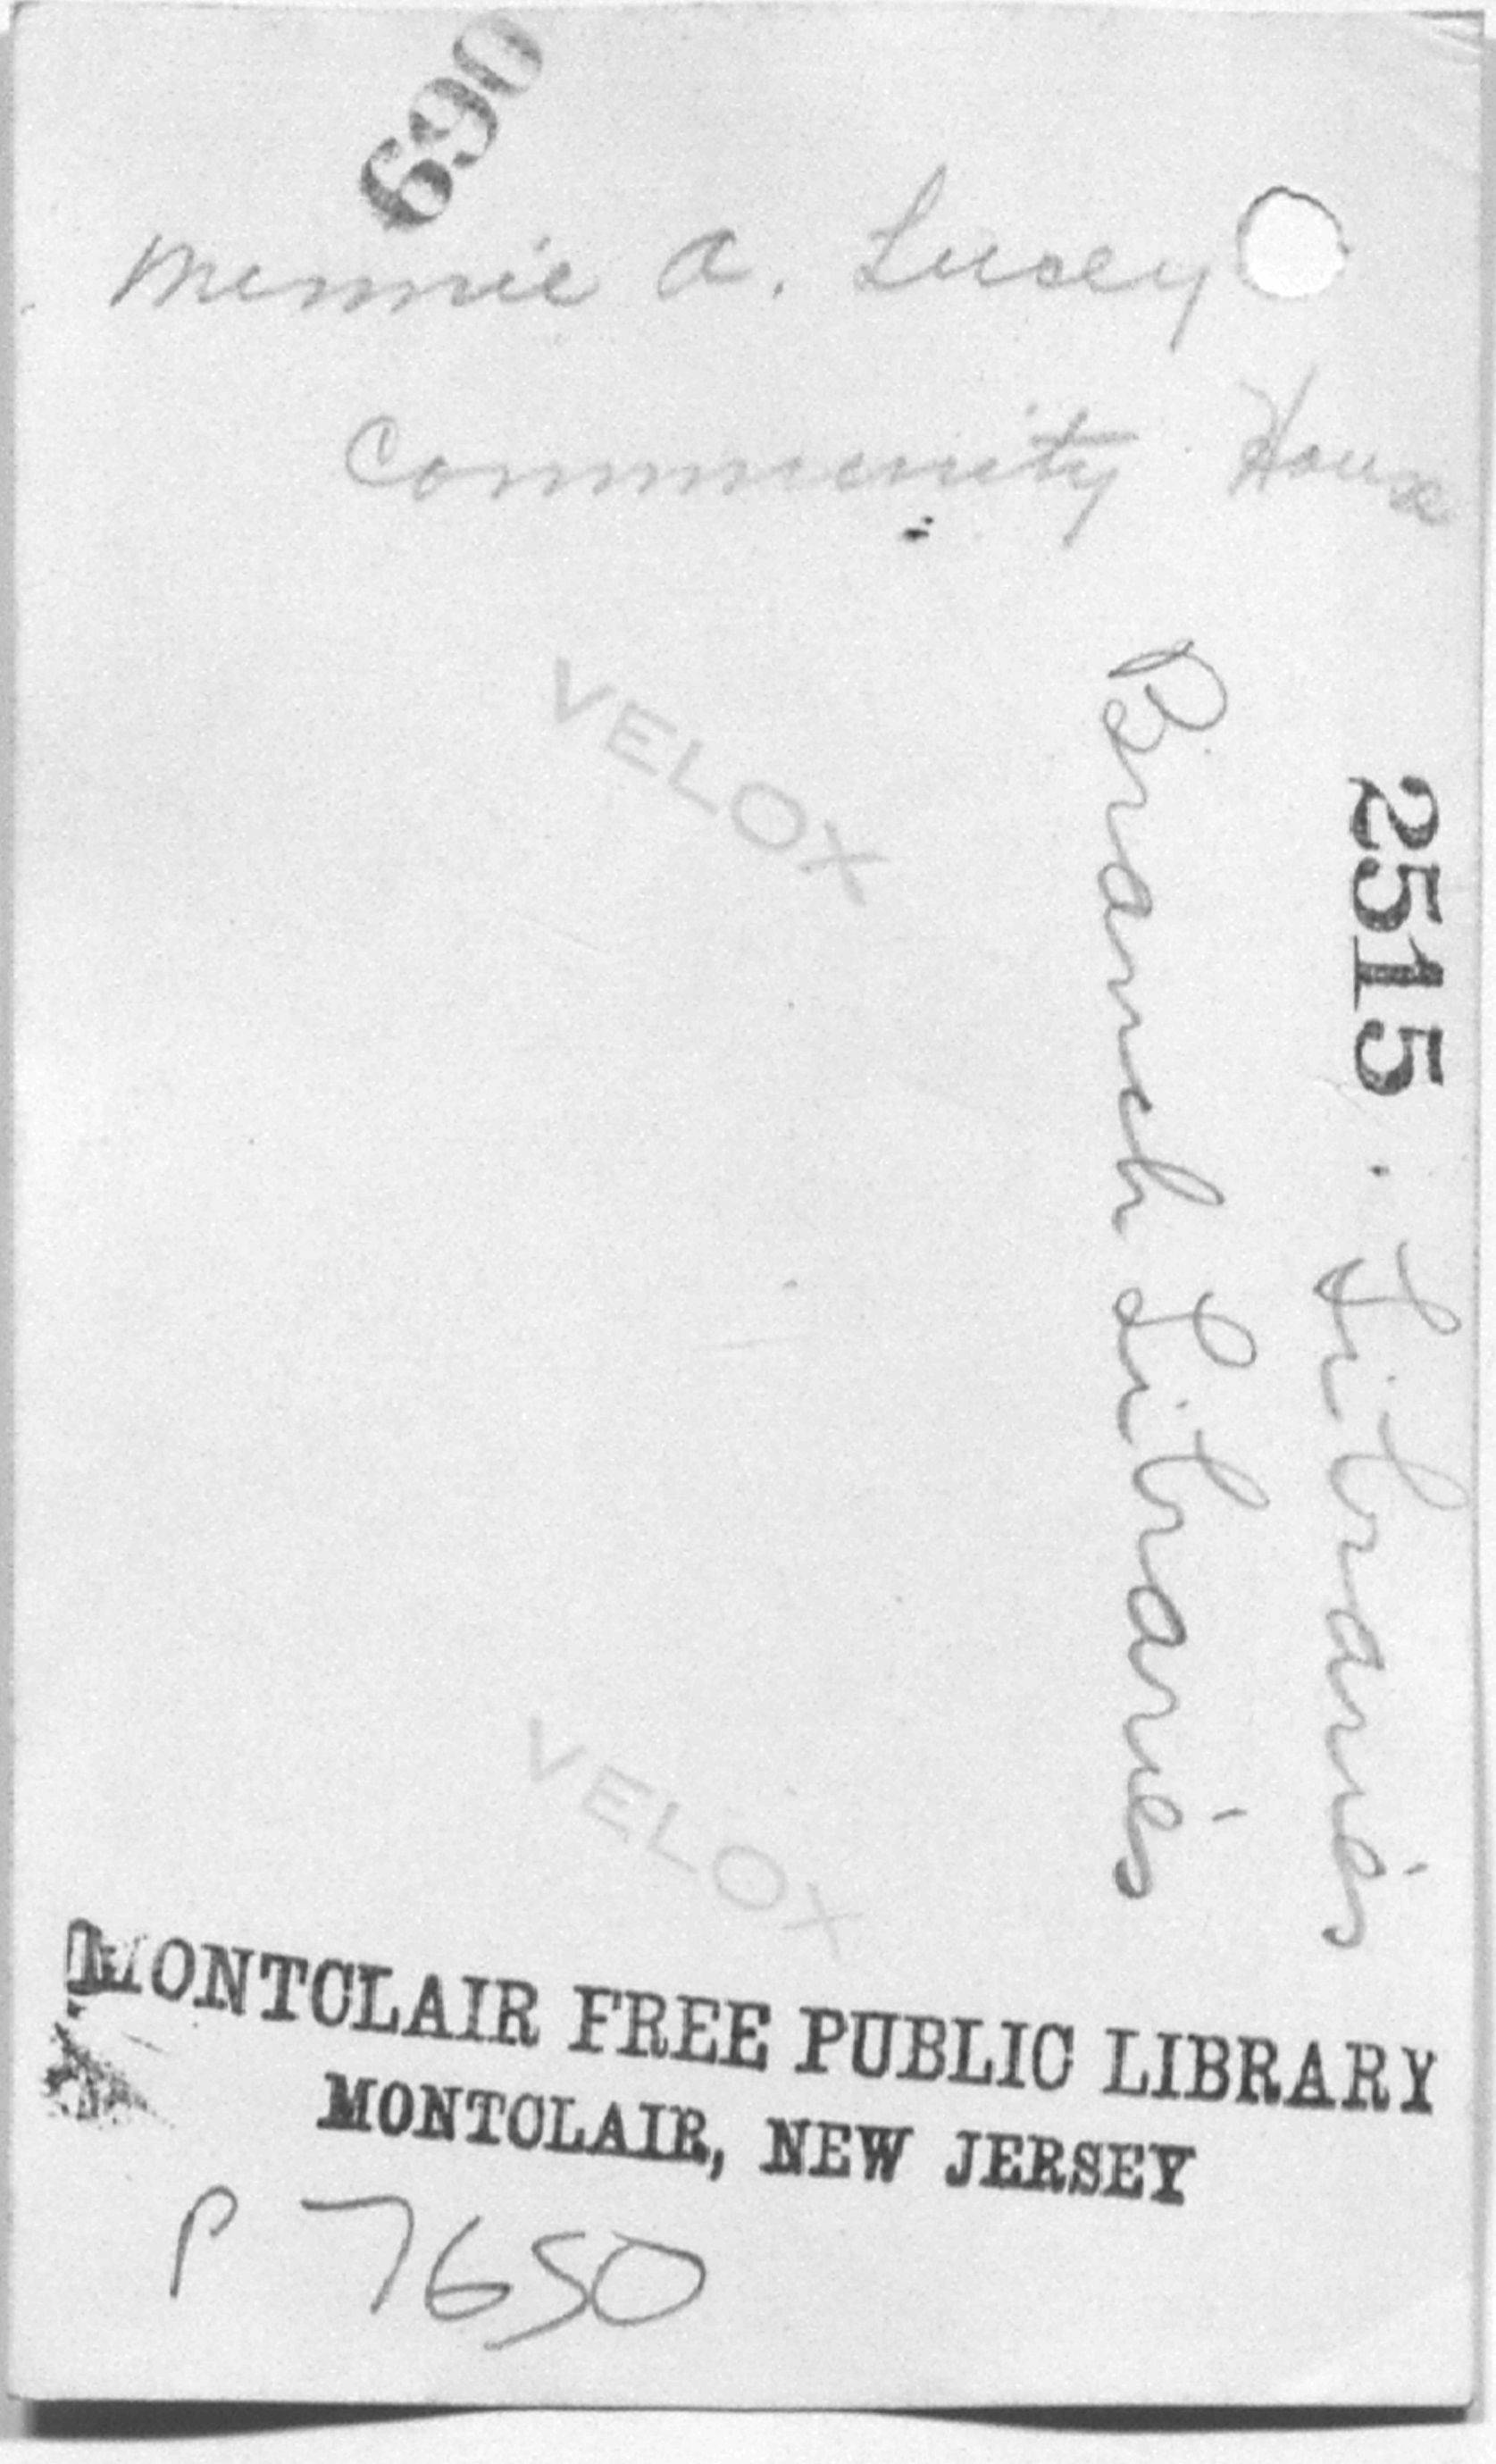 690
Minnie A. Lucey
Community House
VELOX
2515
Libraries
Branch Libraries
VELOX
MONTCLAIR FREE PUBLIC LIBRARY
MONTCLAIR, NEW JERSEY
P 7650